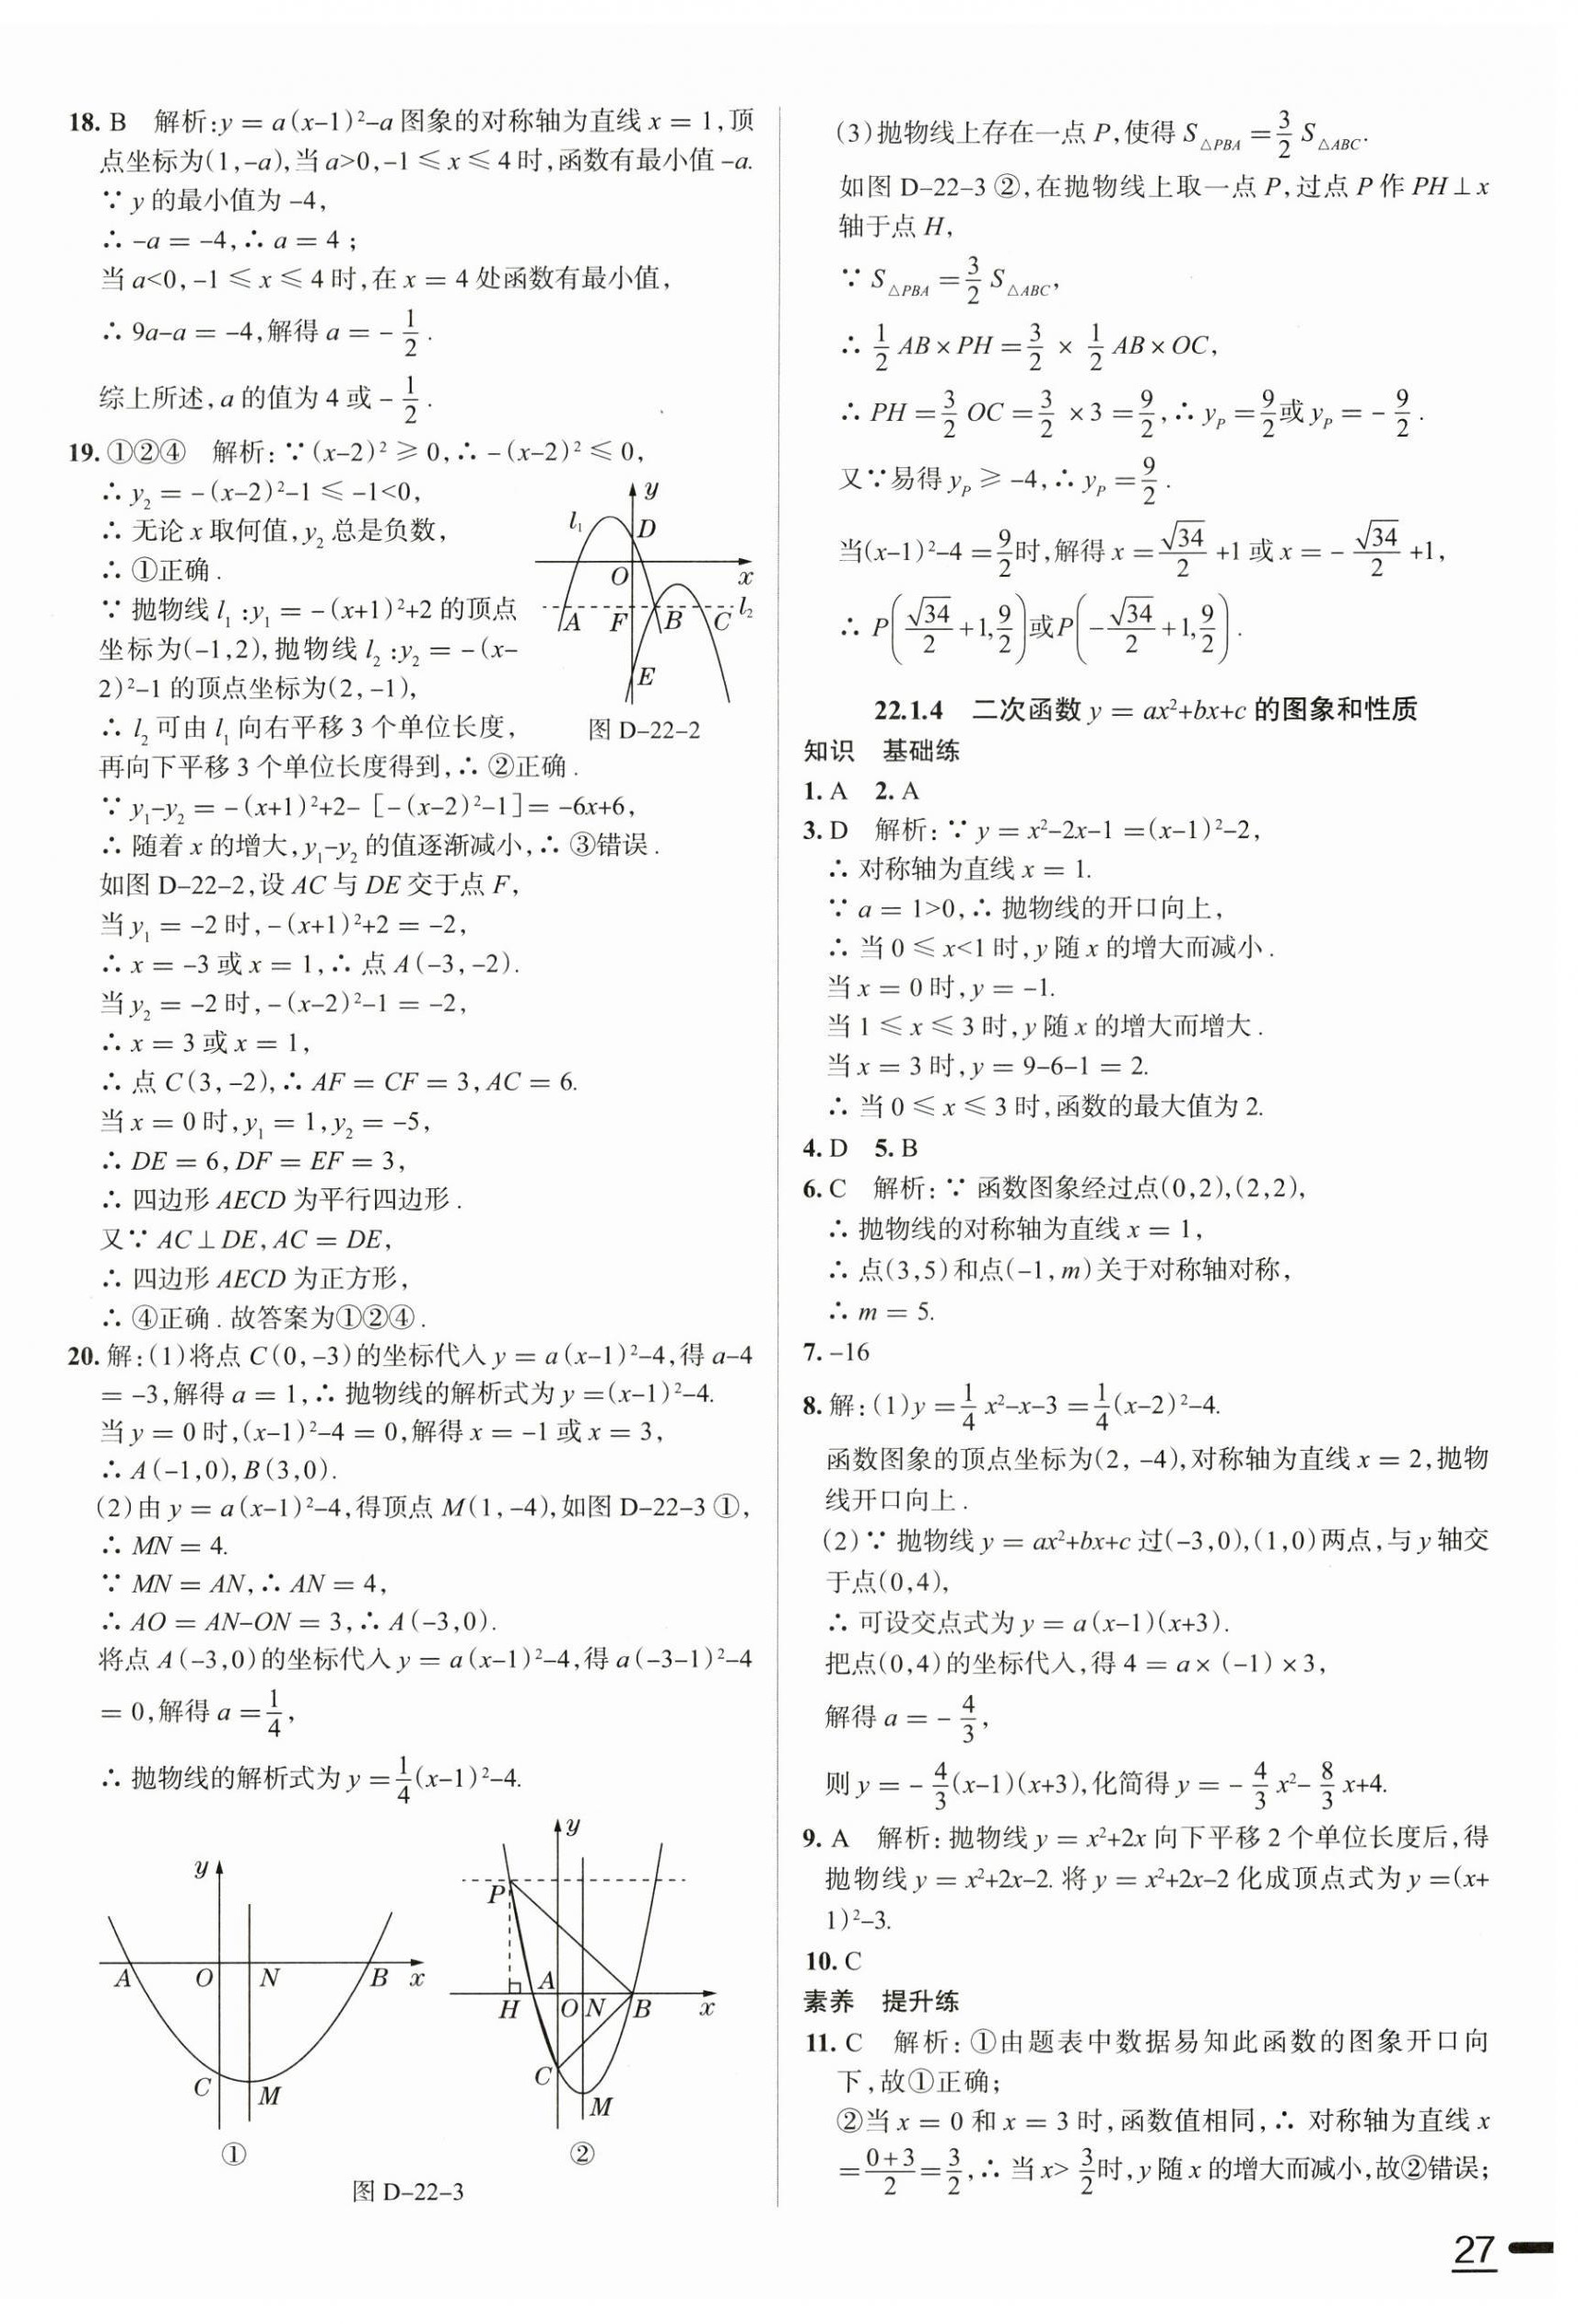 18. B 解析:y = a(x-1)²-a图象的对称轴为直线x = 1,顶
点坐标为(1,-a),当a>0,-1 ⩽ x ⩽ 4时,函数有最小值-a.
∵ y的最小值为-4,
∴ -a = -4,∴ a = 4;
当a<0,-1 ⩽ x ⩽ 4时,在x = 4处函数有最小值,
∴ 9a-a = -4,解得a = -1/2.
综上所述,a的值为4或-1/2.
19. ①②④ 解析:∵ (x-2)² ⩾ 0,∴ -(x-2)² ⩽ 0,
∴ y₂ = -(x-2)²-1 ⩽ -1<0,
∴ 无论x取何值,y₂总是负数,
∴ ①正确.
∵ 抛物线l₁:y₁ = -(x+1)²+2的顶点
坐标为(-1,2),抛物线l₂:y₂ = -(x-
2)²-1的顶点坐标为(2,-1),
∴ l₂可由l₁向右平移3个单位长度,
再向下平移3个单位长度得到,∴ ②正确.
y
l₁
D
O
x
A
F
B
C
l₂
E
图D-22-2
∵ y₁-y₂ = -(x+1)²+2-[-(x-2)²-1]= -6x+6,
∴ 随着x的增大,y₁-y₂的值逐渐减小,∴ ③错误.
如图D-22-2,设AC与DE交于点F,
当y₁ = -2时,-(x+1)²+2 = -2,
∴ x = -3或x = 1,∴ 点A(-3,-2).
当y₂ = -2时,-(x-2)²-1 = -2,
∴ x = 3或x = 1,
∴ 点C(3,-2),∴ AF = CF = 3,AC = 6.
当x = 0时,y₁ = 1,y₂ = -5,
∴ DE = 6,DF = EF = 3,
∴ 四边形AECD为平行四边形.
又∵ AC⊥DE,AC = DE,
∴ 四边形AECD为正方形,
∴ ④正确.故答案为①②④.
20. 解:(1)将点C(0,-3)的坐标代入y = a(x-1)²-4,得a-4
= -3,解得a = 1,∴ 抛物线的解析式为y =(x-1)²-4.
当y = 0时,(x-1)²-4 = 0,解得x = -1或x = 3,
∴ A(-1,0),B(3,0).
(2)由y = a(x-1)²-4,得顶点M(1,-4),如图D-22-3①,
∴ MN = 4.
∵ MN = AN,∴ AN = 4,
∴ AO = AN-ON = 3,∴ A(-3,0).
将点A(-3,0)的坐标代入y = a(x-1)²-4,得a(-3-1)²-4
= 0,解得a = 1/4,
∴ 抛物线的解析式为y = 1/4(x-1)²-4.
y
A
O
N
B
x
C
M
①
y
P
A
H
O
N
B
x
C
M
②
图D-22-3
(3)抛物线上存在一点P,使得S△PBA = 3/2 S△ABC.
如图D-22-3②,在抛物线上取一点P,过点P作PH⊥x
轴于点H,
∵ S△PBA = 3/2 S△ABC,
∴ 1/2 AB×PH = 3/2 × 1/2 AB×OC,
∴ PH = 3/2 OC = 3/2 ×3 = 9/2,∴ yP = 9/2或yP = -9/2.
又∵易得yP ⩾ -4,∴ yP = 9/2.
当(x-1)²-4 = 9/2时,解得x = √34/2 +1或x = -√34/2 +1,
∴ P(√34/2 +1,9/2)或P(-√34/2 +1,9/2).
22.1.4 二次函数y = ax²+bx+c的图象和性质
知识 基础练
1. A 2. A
3. D 解析:∵ y = x²-2x-1 =(x-1)²-2,
∴ 对称轴为直线x = 1.
∵ a = 1>0,∴ 抛物线的开口向上,
∴ 当0 ⩽ x<1时,y随x的增大而减小.
当x = 0时,y = -1.
当1 ⩽ x ⩽ 3时,y随x的增大而增大.
当x = 3时,y = 9-6-1 = 2.
∴ 当0 ⩽ x ⩽ 3时,函数的最大值为2.
4. D 5. B
6. C 解析:∵ 函数图象经过点(0,2),(2,2),
∴ 抛物线的对称轴为直线x = 1,
∴ 点(3,5)和点(-1,m)关于对称轴对称,
∴ m = 5.
7. -16
8. 解:(1)y = 1/4 x²-x-3 = 1/4(x-2)²-4.
函数图象的顶点坐标为(2,-4),对称轴为直线x = 2,抛物
线开口向上.
(2)∵ 抛物线y = ax²+bx+c过(-3,0),(1,0)两点,与y轴交
于点(0,4),
∴ 可设交点式为y = a(x-1)(x+3).
把点(0,4)的坐标代入,得4 = a×(-1)×3,
解得a = -4/3,
则y = -4/3(x-1)(x+3),化简得y = -4/3 x²-8/3 x+4.
9. A 解析:抛物线y = x²+2x向下平移2个单位长度后,得
抛物线y = x²+2x-2.将y = x²+2x-2化成顶点式为y =(x+
1)²-3.
10. C
素养 提升练
11. C 解析:①由题表中数据易知此函数的图象开口向
下,故①正确;
②当x = 0和x = 3时,函数值相同,∴ 对称轴为直线x
= (0+3)/2 = 3/2,∴ 当x> 3/2时,y随x的增大而减小,故②错误;
27